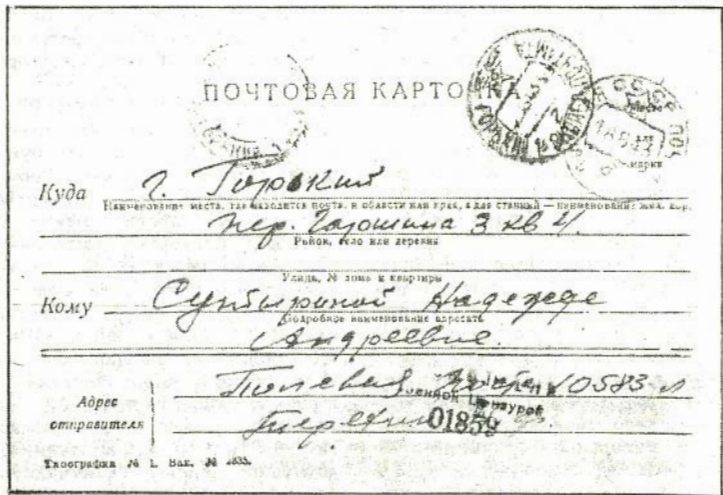 ПОЧТОВАЯ КАРТОЧКА
Куда г. Горький
Наименование места, где находится почта, и области или края, а для станций — наименование жел. дор.
пер. Гаршина 3 кв 4.
Район, село или деревня
Улица, № дома и квартиры
Кому Сунтыриной Надежде
Подробное наименование адресата
Андреевне.
Адрес отправителя
Полевая почта 10583
военной цензурой
01859
Типография № 1. Зак. № 4833.